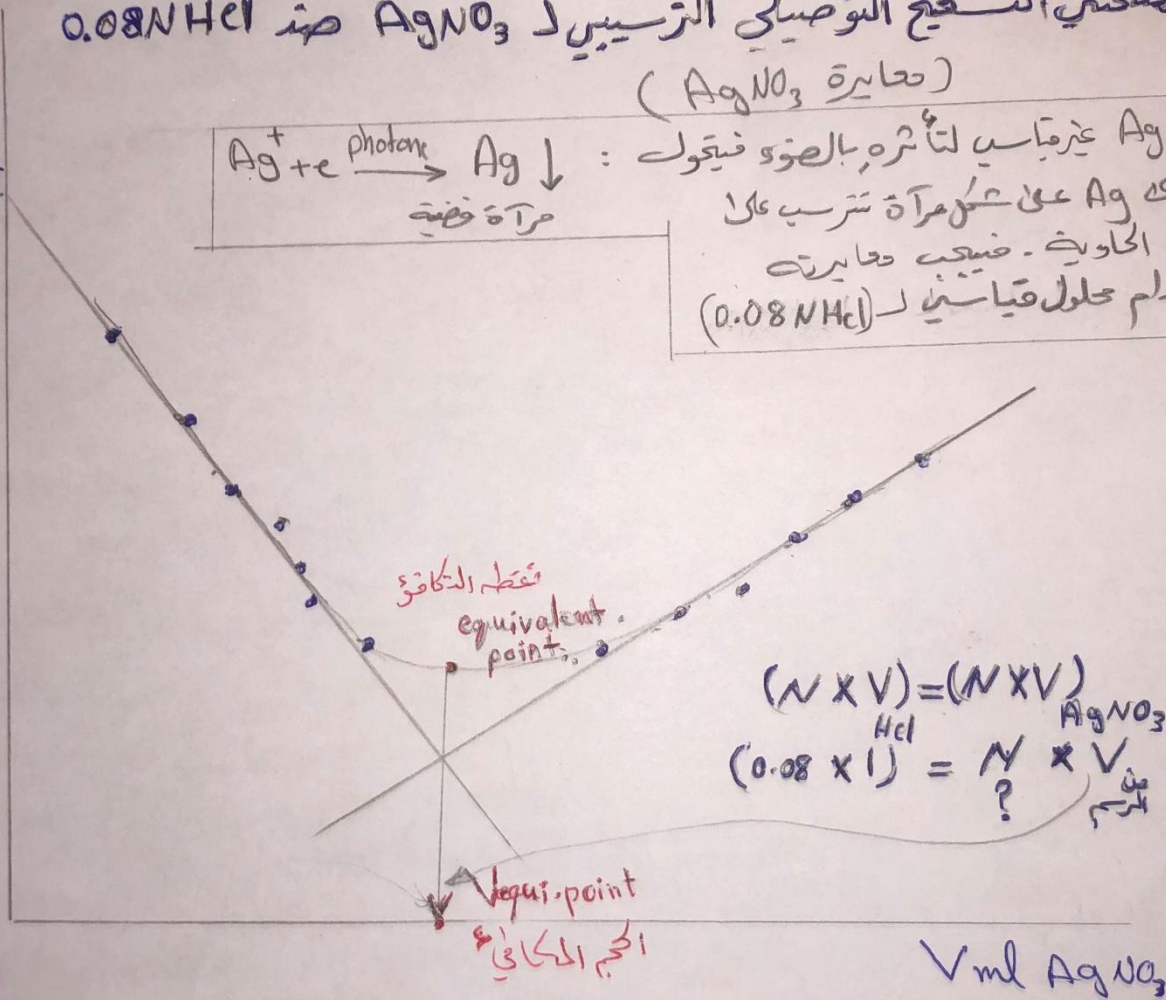 التوصيلي الترسيبي لـ AgNO₃ ضد 0.08N HCl
(معايرة AgNO₃)
Ag غير قياسي لتأثره بالضوء فيتحول :
Ag⁺ + e photone → Ag ↓
مرآة فضية
Ag على شكل مرآة تترسب على
الحاوية . فيجب معايرته
محلول قياسي لـ (0.08 N HCl)
نقطه التكافؤ
equivalent
point
(N X V)HCl = (N X V)AgNO₃
(0.08 X 1) = N * V من الرسم
?
Vequi.point
الحجم المكافئ
V ml AgNO₃